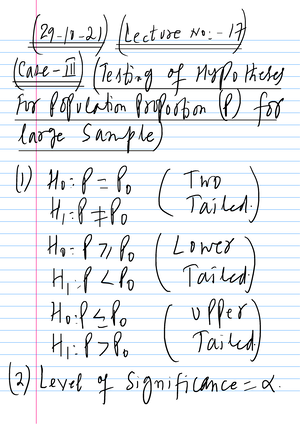 (29-10-21) (Lecture No:- 17)
(Case-III) (Testing of Hypotheses
For Population Proportion (P) for
large Sample)
(1) H₀: P = P₀ (Two
H₁: P ≠ P₀ Tailed)
H₀: P ≥ P₀ (Lower
H₁: P < P₀ Tailed)
H₀: P ≤ P₀ (Upper
H₁: P > P₀ Tailed)
(2) Level of Significance = α.